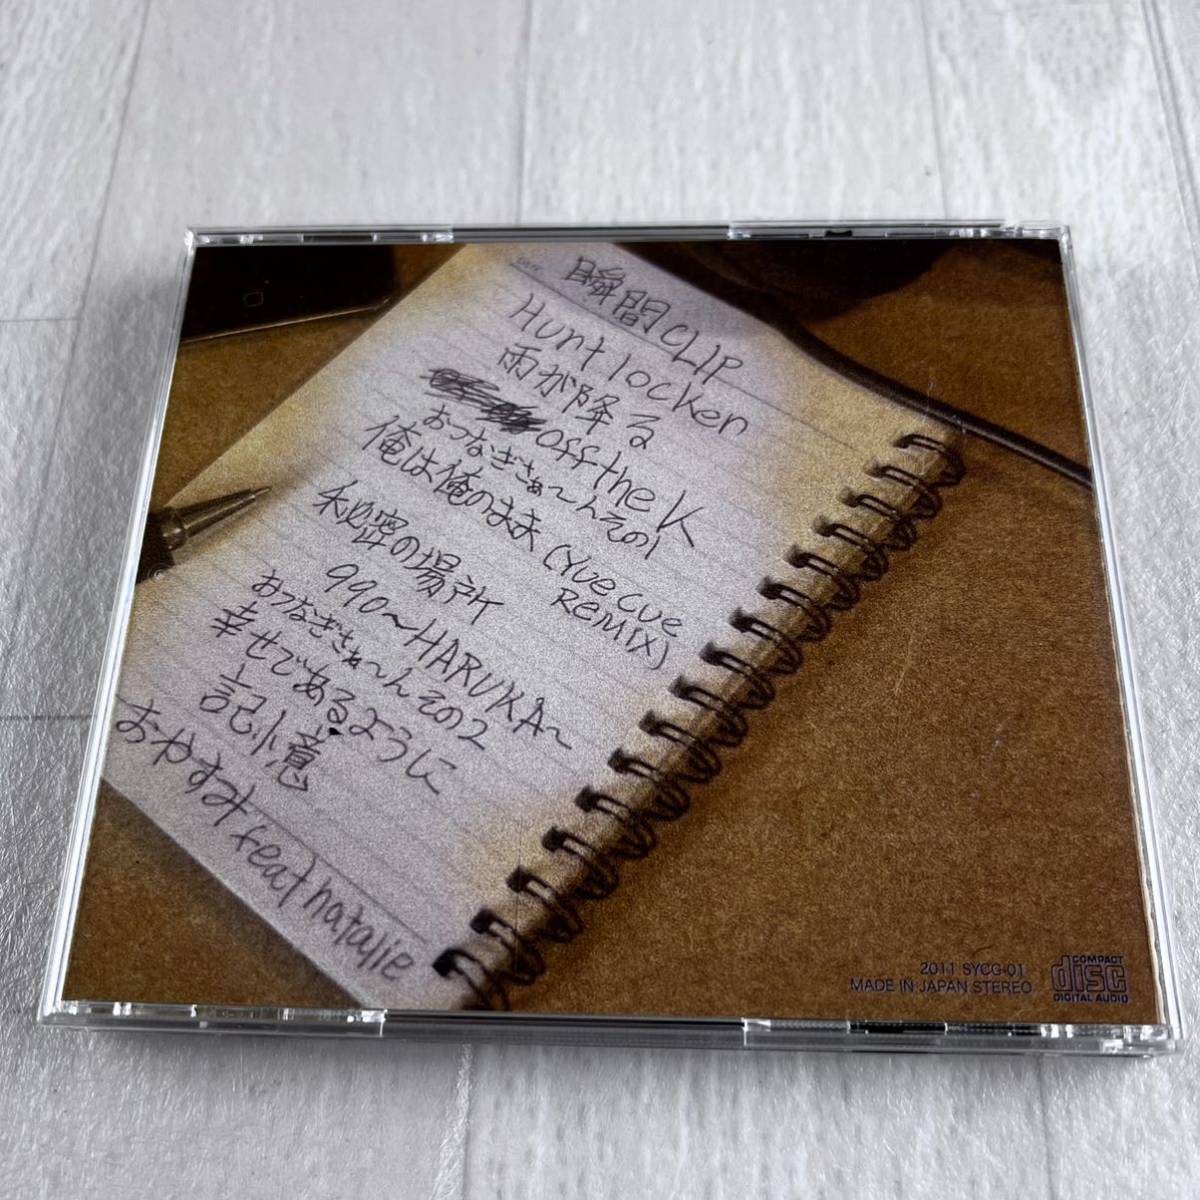 瞬間CLIP
Hurt locker
雨が降る
off the K
おつなぎさぁ〜んその1
俺は俺のまま (Yue Cue
REMIX)
秘密の場所
990〜HARUKA〜
おつなぎさぁ〜んその2
幸せであるように
記憶
おやすみ feat natalie
2011 SYCG-01
MADE IN JAPAN STEREO
COMPACT
disc
DIGITAL AUDIO